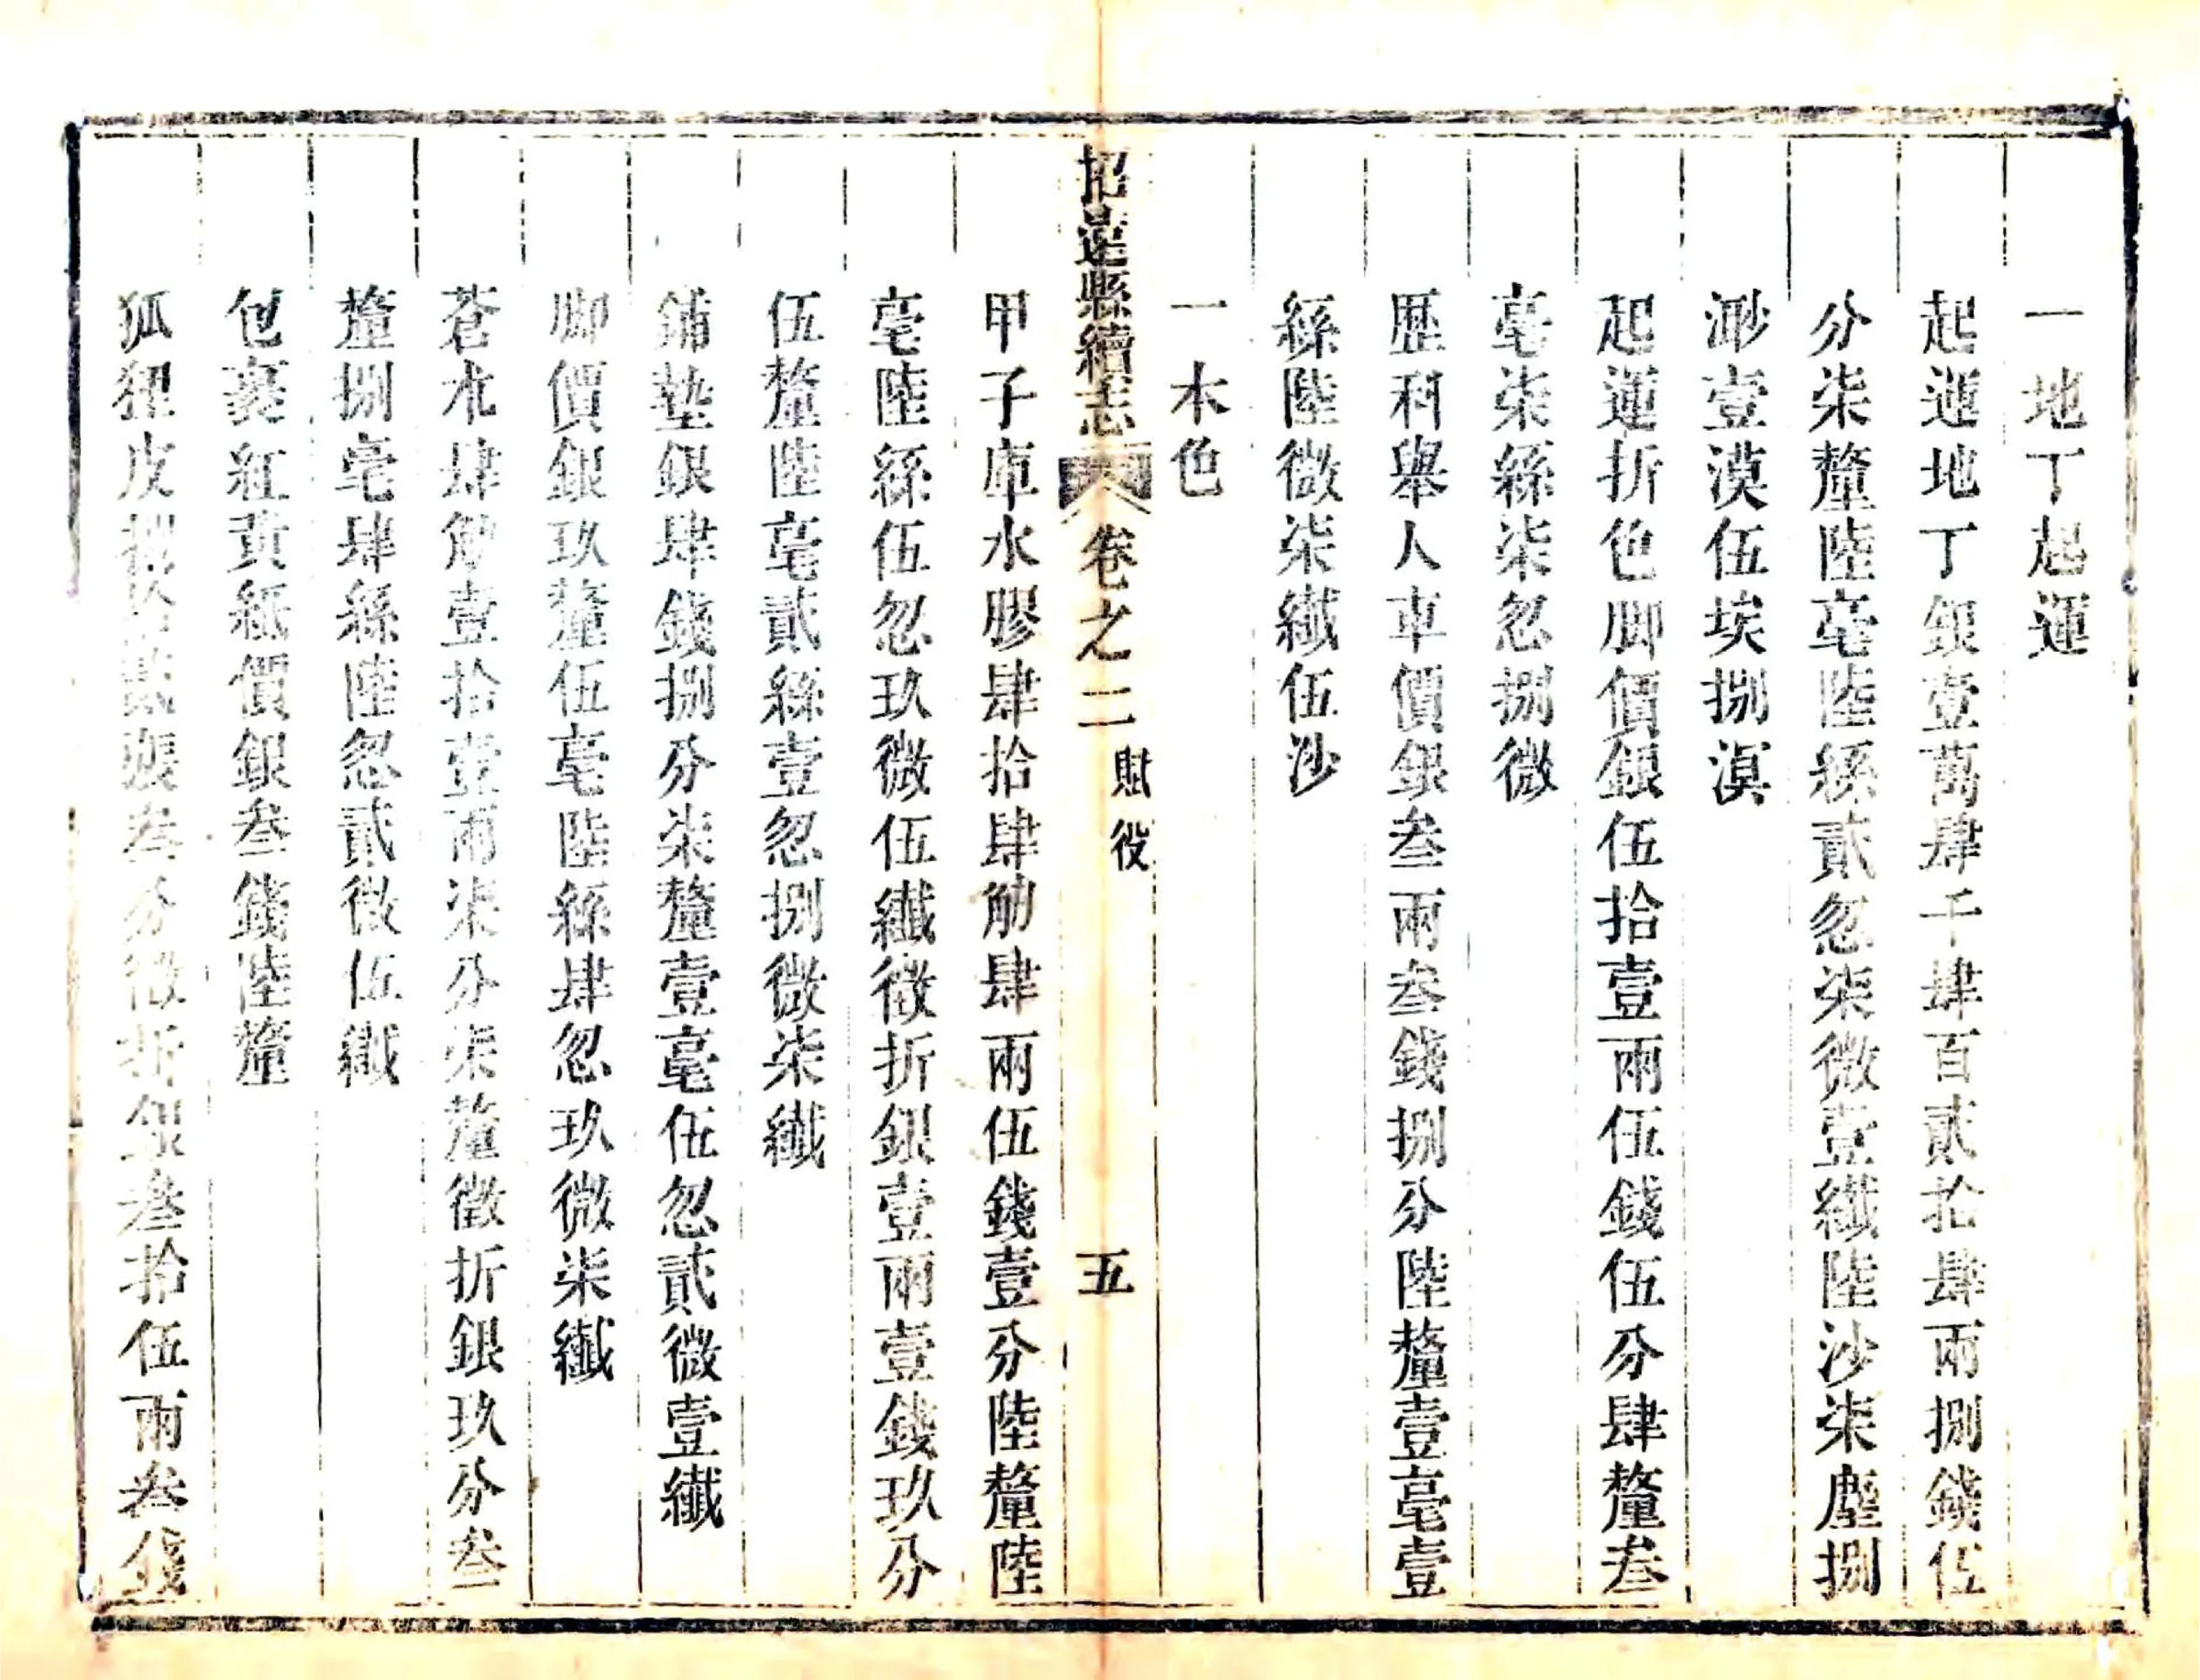 一地丁起運
起運地丁銀壹萬肆千肆百貳拾肆兩捌錢伍
分柒釐陸毫陸絲貳忽柒微壹纖陸沙柒塵捌
渺壹漠伍埃捌溟
起運折色脚價銀伍拾壹兩伍錢伍分肆釐叁
毫柒絲柒忽捌微
歷科舉人車價銀叁兩叁錢捌分陸釐壹毫壹
絲陸微柒纖伍沙
一本色
招遠縣續志 卷之二 賦役 五
甲子庫水膠肆拾肆觔肆兩伍錢壹分陸釐陸
毫陸絲伍忽玖微伍纖徵折銀壹兩壹錢玖分
伍釐陸毫貳絲壹忽捌微柒纖
鋪墊銀肆錢捌分柒釐壹毫伍忽貳微壹纖
脚價銀玖釐伍毫陸絲肆忽玖微柒纖
蒼朮肆觔壹拾壹兩柒分柒釐徵折銀玖分叁
釐捌毫肆絲陸忽貳微伍纖
包裹紅黃紙價銀叁錢陸釐
狐狸皮張叁分徵折銀叁拾伍兩叁錢